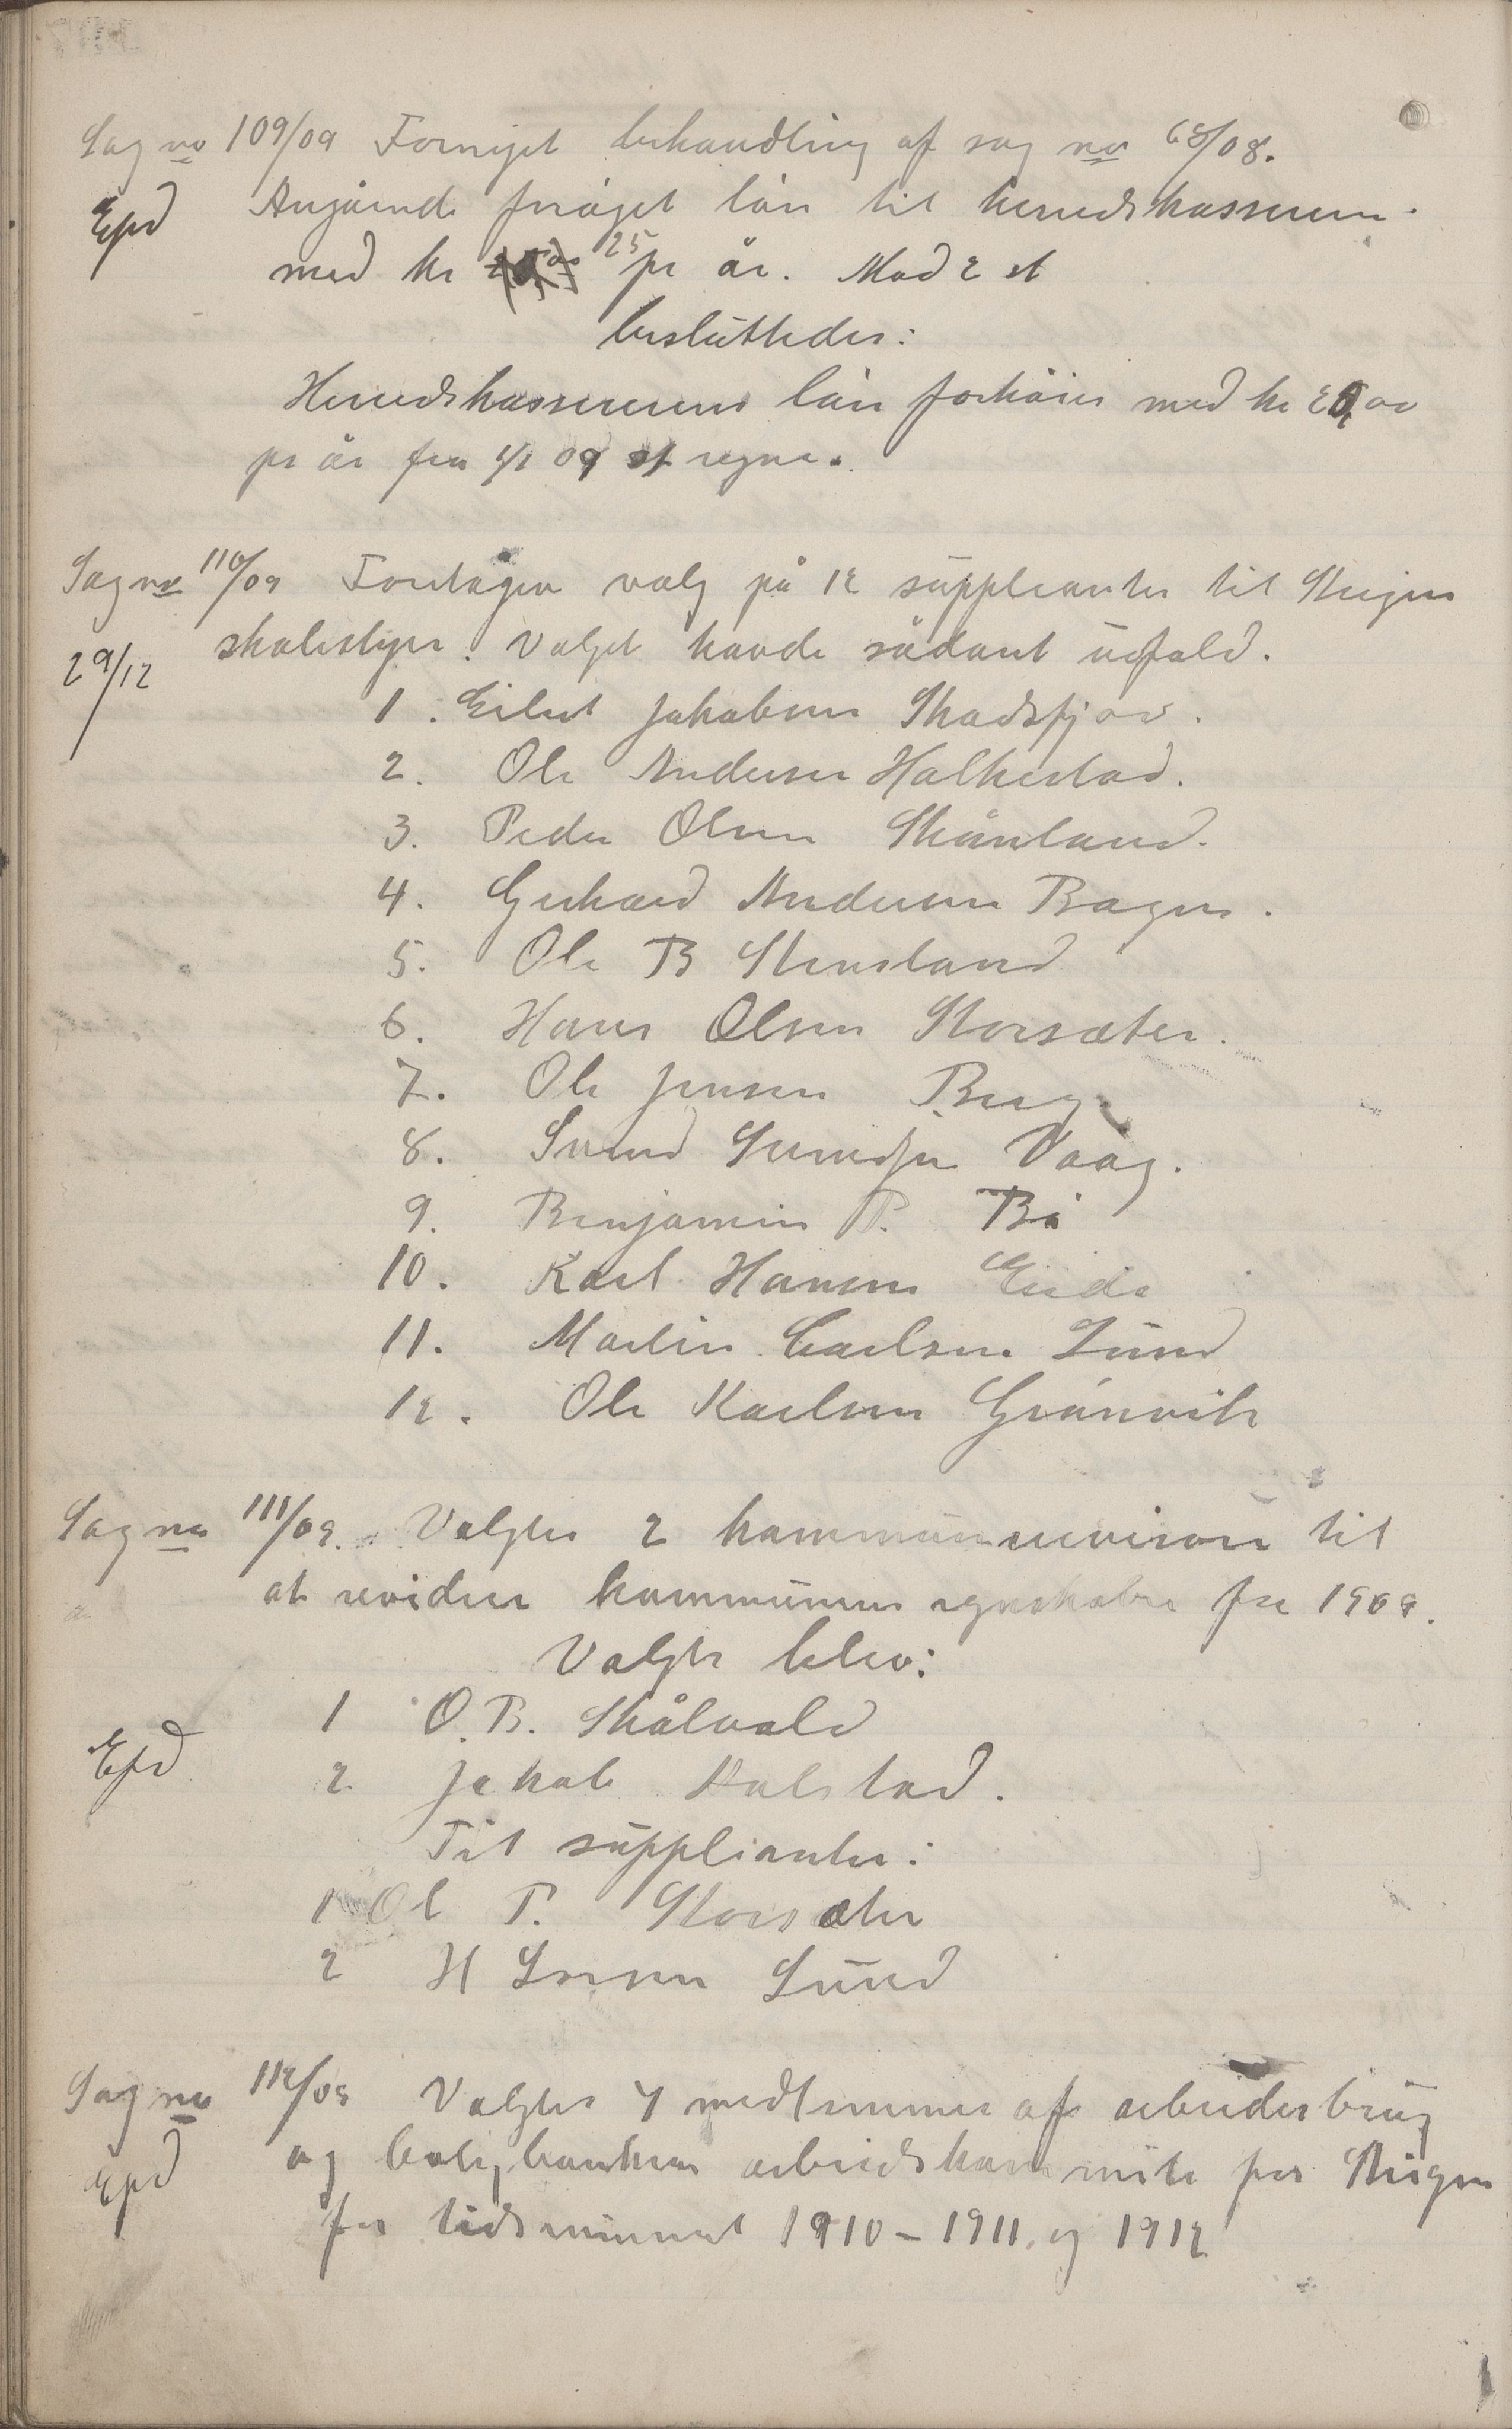 Sag no 109/09 Fornyet behandling af sag no 68/08.
Expd Angåend forøget løn til herredskassereren
med kr 25 pr år. Mod 2 st
besluttedes:
Herredskassererens løn forhøies med kr 20,00
pr år fra 1/1 09 at regne.
Sag no 110/09 Foretagen valg på 12 supplianter til Steigen
29/12 skolestyre. Valget havde sådant udfald.
1. Eilert Jakobsen Skadsfjor.
2. Ole Andersen Halkestad.
3. Peder Olsen Skånland.
4. Gerhard Andersen Bagen.
5. Ole B Stensland
6. Hans Olsen Storsæter.
7. Ole Jensen Berg.
8. Svend Svendsen Vaag.
9. Benjamin P. Bø
10. Karl Hansen Eide
11. Martin Carlsen Lund
12. Ole Karlsen Grønvik
Sag no 111/09. Valgtes 2 kommunerevisorer til
at revidere kommunens regnskaber for 1909.
Valgte blev:
1 O. B. Skålvold
Expd
2 Jakob Kalstad.
Til supplianter:
1 Ol P. Storsæter
2 H Larsen Lund
Sag no 112/09 Valgtes 4 medlemmer af arbeiderbrug
Expd og boligbankens arbeidskommite for Steigen
for tidsrummet 1910 – 1911 og 1912